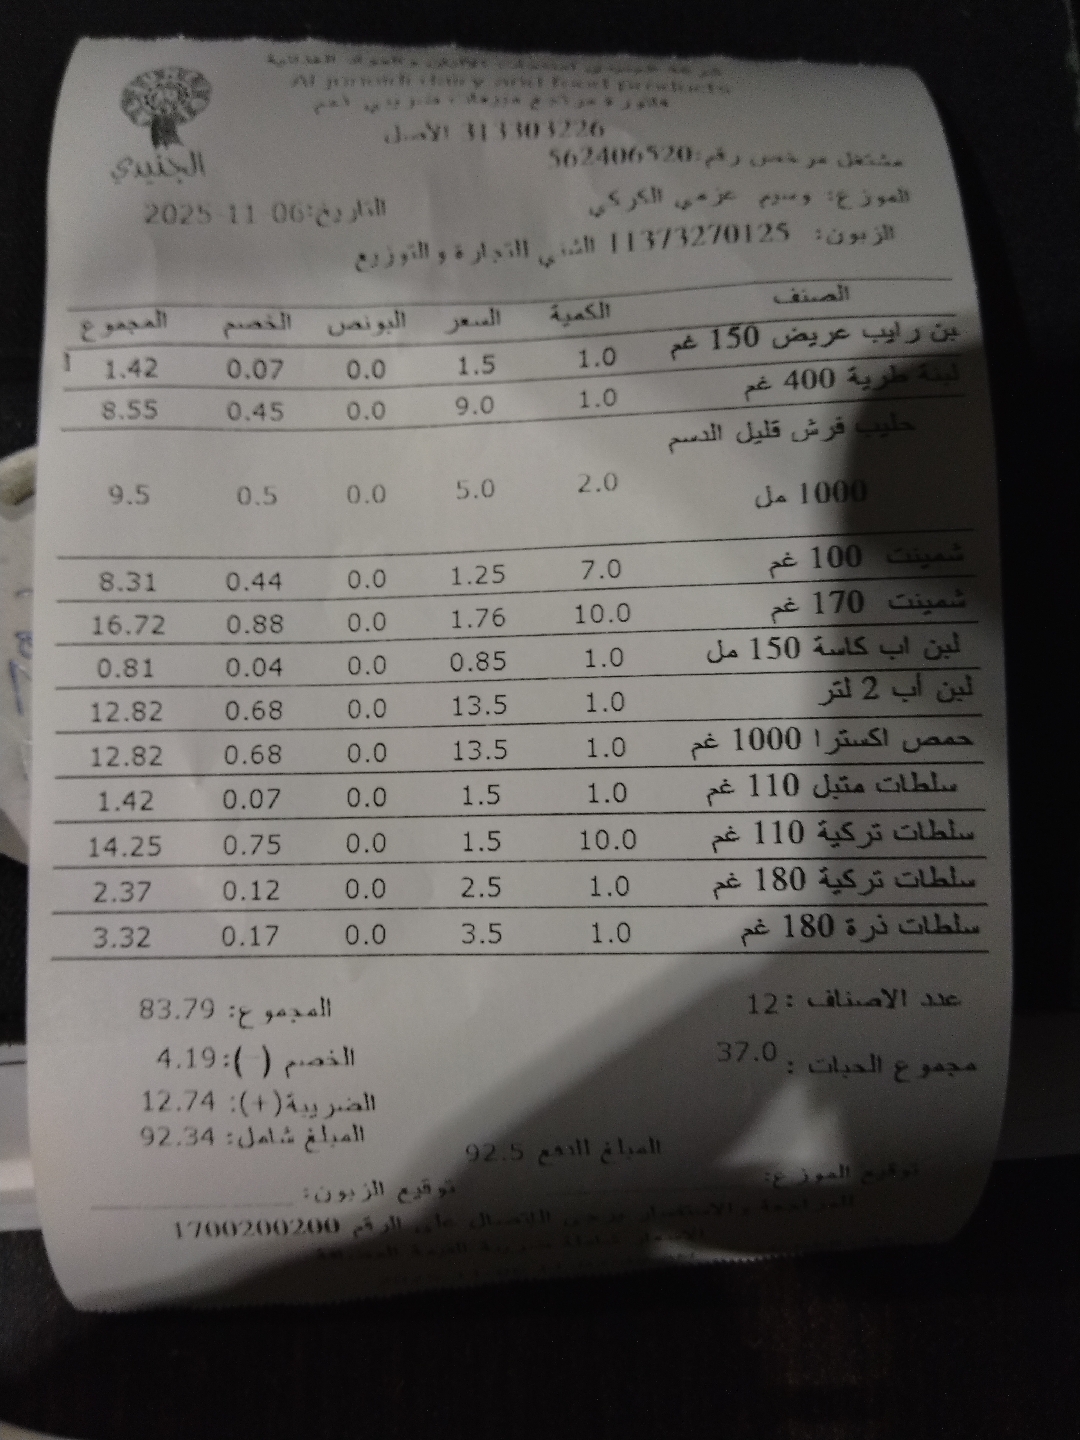 الجنيدي
Al Juneidi dairy and food products
313303226 الأصل
مشتغل مرخص رقم:562406520
الموزع: وسيم عزمي الكركي
التاريخ:2025-11-06
الزبون: 11373270125 الشني للتجارة والتوزيع
الصنف الكمية السعر البونص الخصم المجموع
بن رايب عريض 150 غم 1.0 1.5 0.0 0.07 1.42
لبنة طرية 400 غم 1.0 9.0 0.0 0.45 8.55
حليب فرش قليل الدسم
1000 مل 2.0 5.0 0.0 0.5 9.5
شمينت 100 غم 7.0 1.25 0.0 0.44 8.31
شمينت 170 غم 10.0 1.76 0.0 0.88 16.72
لبن اب كاسة 150 مل 1.0 0.85 0.0 0.04 0.81
لبن أب 2 لتر 1.0 13.5 0.0 0.68 12.82
حمص اكسترا 1000 غم 1.0 13.5 0.0 0.68 12.82
سلطات متبل 110 غم 1.0 1.5 0.0 0.07 1.42
سلطات تركية 110 غم 10.0 1.5 0.0 0.75 14.25
سلطات تركية 180 غم 1.0 2.5 0.0 0.12 2.37
سلطات ذرة 180 غم 1.0 3.5 0.0 0.17 3.32
عدد الاصناف :12
المجموع: 83.79
مجموع الحبات : 37.0
الخصم (-):4.19
الضريبة(+): 12.74
المبلغ شامل: 92.34
المبلغ للدفع 92.5
توقيع الموزع:
توقيع الزبون:
للمراجعة والاستفسار يرجى الاتصال على الرقم 1700200200